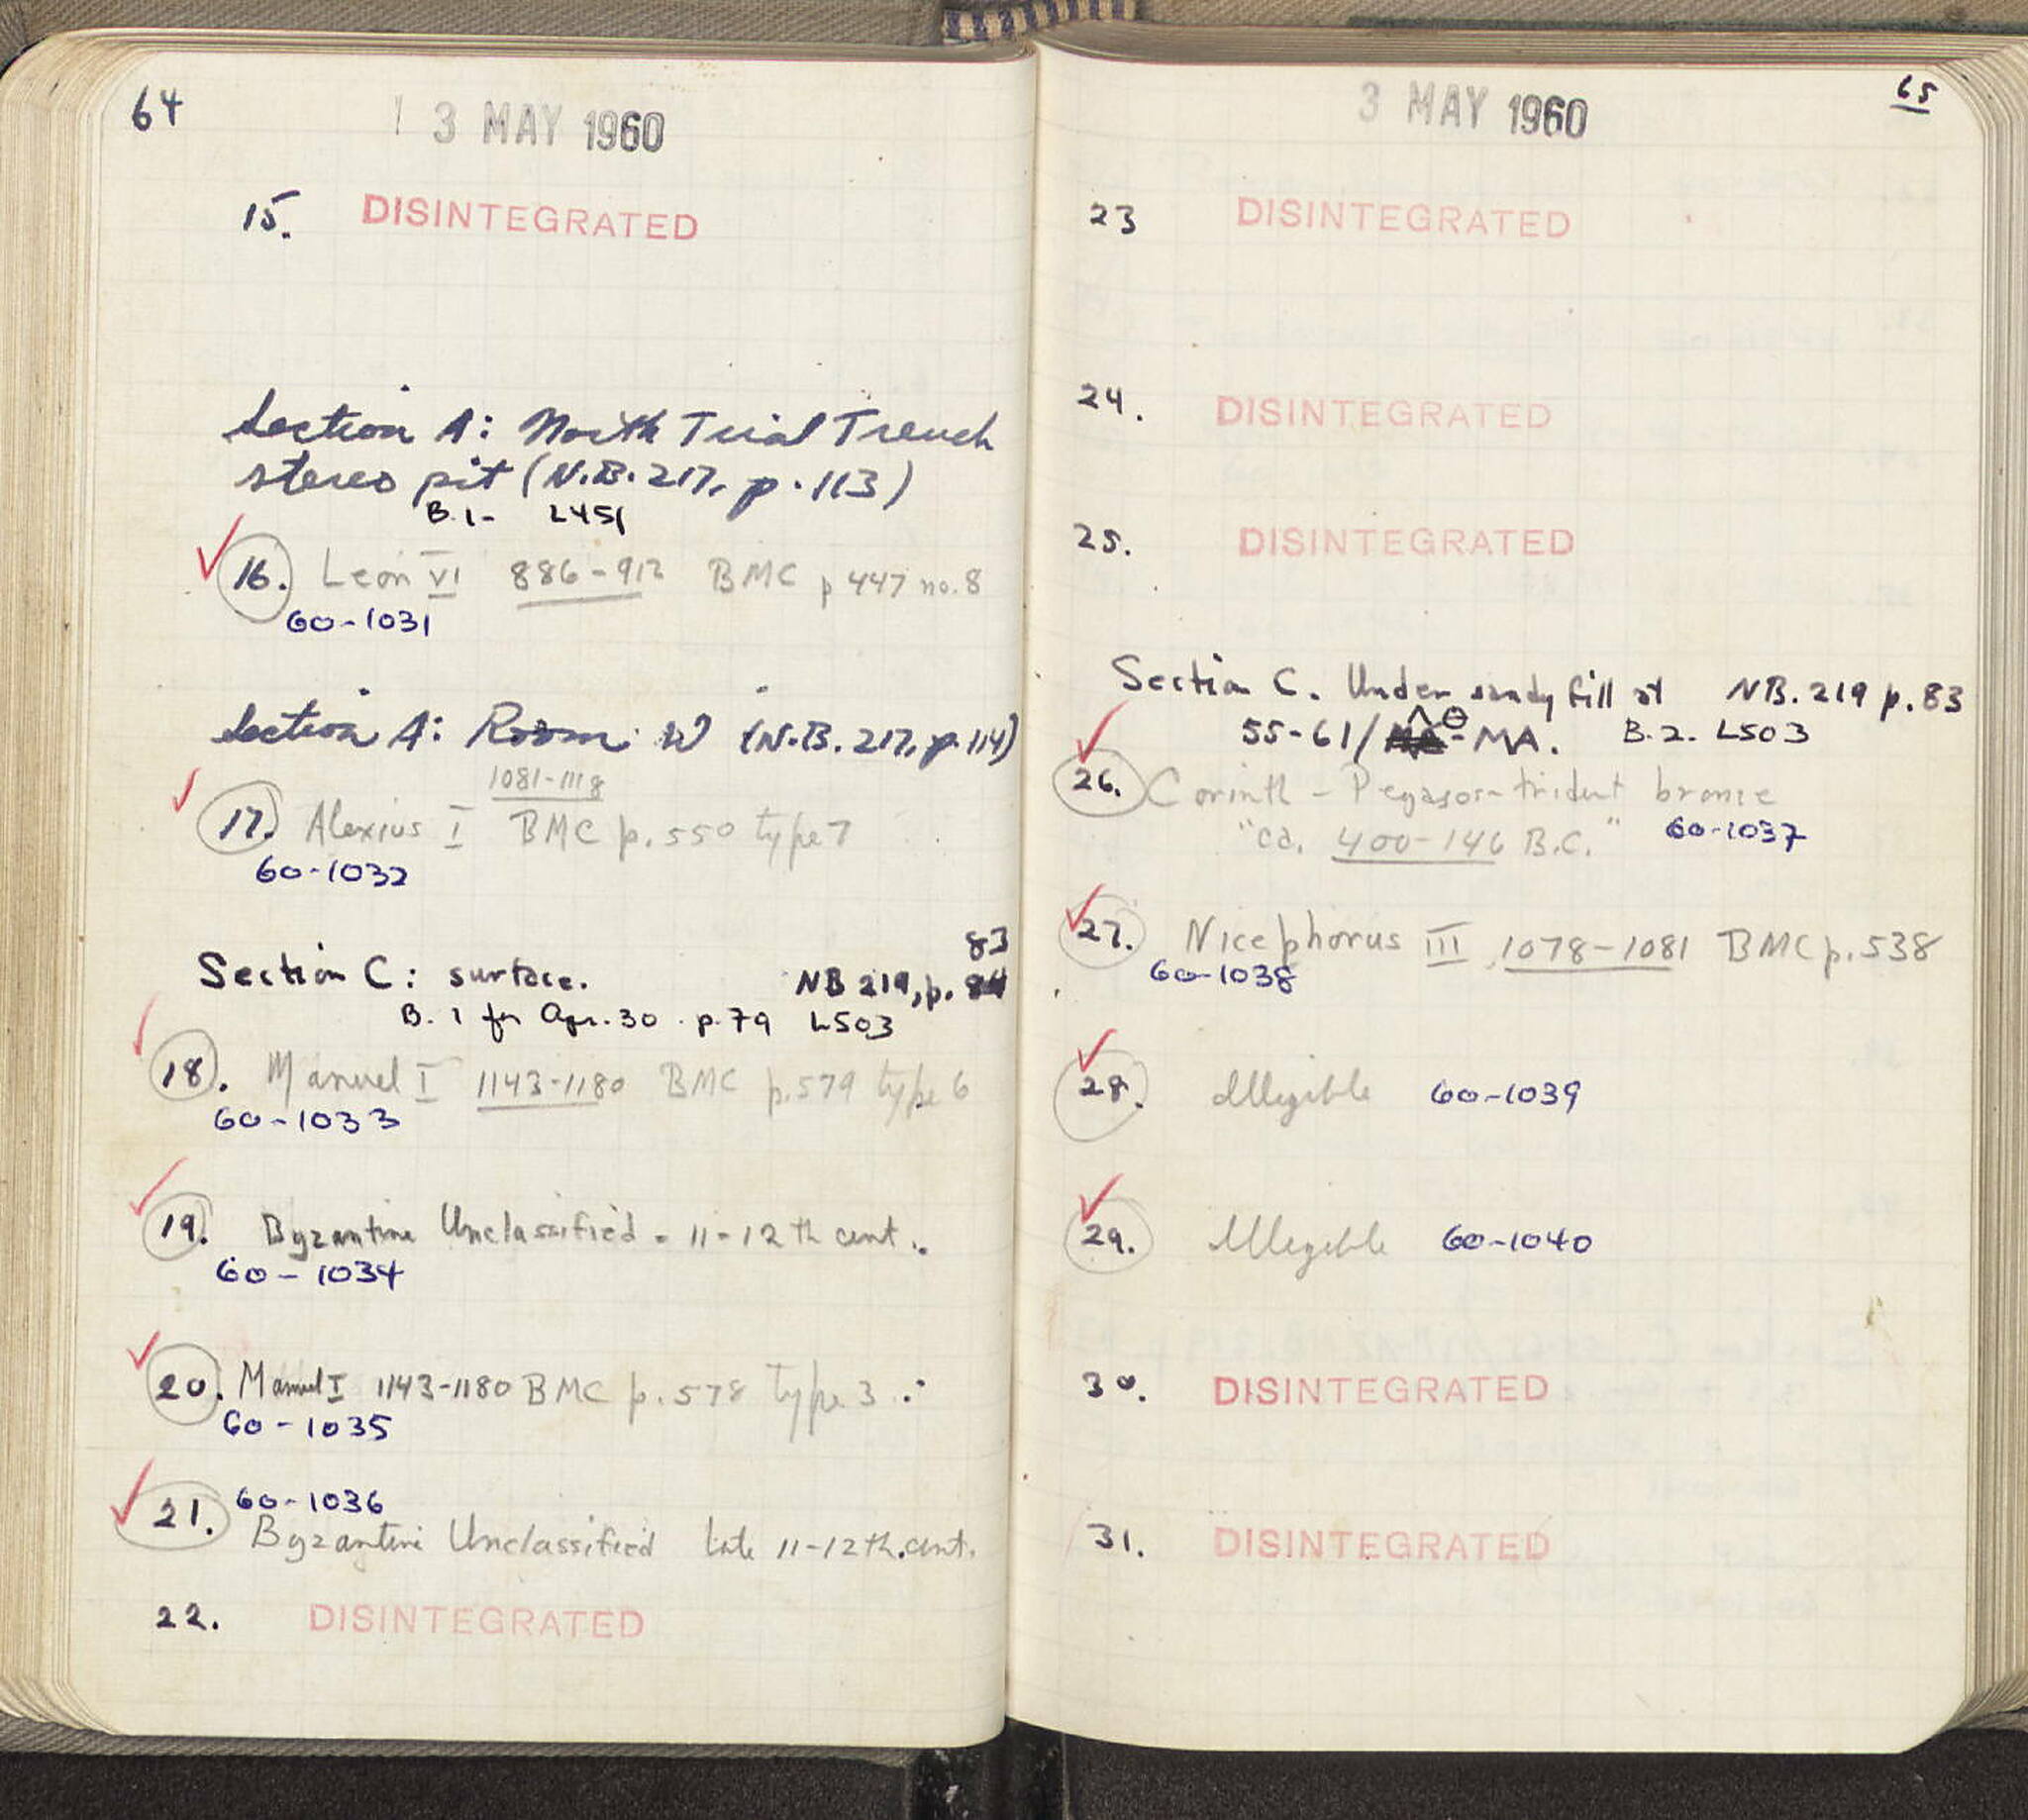 64
3 MAY 1960
15. DISINTEGRATED
Section A: North Trial Trench
stereo pit (N.B. 217, p. 113)
B.1- L451
16. Leon VI 886-912 BMC p 447 no. 8
60-1031
Section A: Room W (N.B. 217, p. 114)
1081-1118
17. Alexius I BMC p. 550 type 7
60-1032
83
Section C: surface. NB 219, p. 84
B. 1 for Apr. 30 p. 79 L503
18. Manuel I 1143-1180 BMC p. 579 type 6
60-1033
19. Byzantine Unclassified - 11-12th cent.
60-1034
20. Manuel I 1143-1180 BMC p. 578 Type 3
60-1035
60-1036
21. Byzantine Unclassified late 11-12th.cent.
22. DISINTEGRATED
65
3 MAY 1960
23 DISINTEGRATED
24. DISINTEGRATED
25. DISINTEGRATED
Section C. Under sandy fill at NB. 219 p. 83
55-61/ΛΘ-MA. B.2. L503
26. Corinth - Pegasos-trident bronze
"ca. 400-146 B.C." 60-1037
27. Nicephorus III 1078-1081 BMC p. 538
60-1038
28. Illegible 60-1039
29. Illegible 60-1040
30. DISINTEGRATED
31. DISINTEGRATED